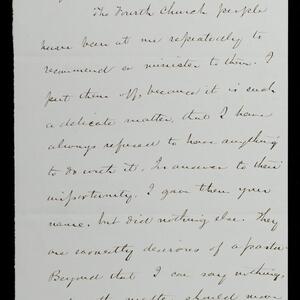 The Fourth Church people
have been at me repeatedly to
recommend a minister to them. I
put them off, because it is such
a delicate matter, that I have
always refused to have anything
to do with it. In answer to their
importunity, I gave them your
name, but did nothing else. They
are earnestly desirous of a pastor
Beyond that I can say nothing,
the matter should